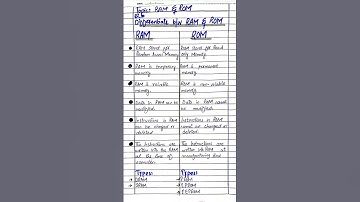 Topic: RAM & ROM
Differentiate b/w RAM & ROM
RAM ROM
RAM stand for ROM stand for Read
Random Access Memory only Memory
RAM is temporary ROM is permanent
memory memory
RAM is volatile ROM is non volatile
memory memory
Data in RAM can be Data in ROM cannot
modified. be modified.
Instructions in RAM Instructions in ROM
can be changed or cannot be changed or
deleted deleted.
The instructions are The instructions are
written into the RAM written into ROM at
at the time of manufacturing time
execution
Types: Types:
DRAM PROM
SRAM EPROM
EEPROM